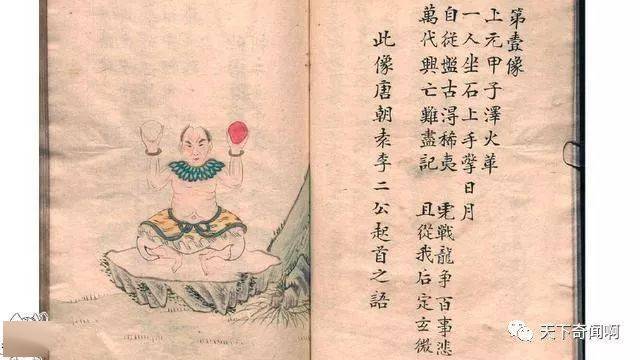 第壹像
上元甲子澤火革
一人坐石上手擎日月
自從盤古淂稀夷 虎戰龍爭百事悲
萬代興亡難盡記 且從我后定玄微
此像唐朝袁李二公起首之語
天下奇闻啊